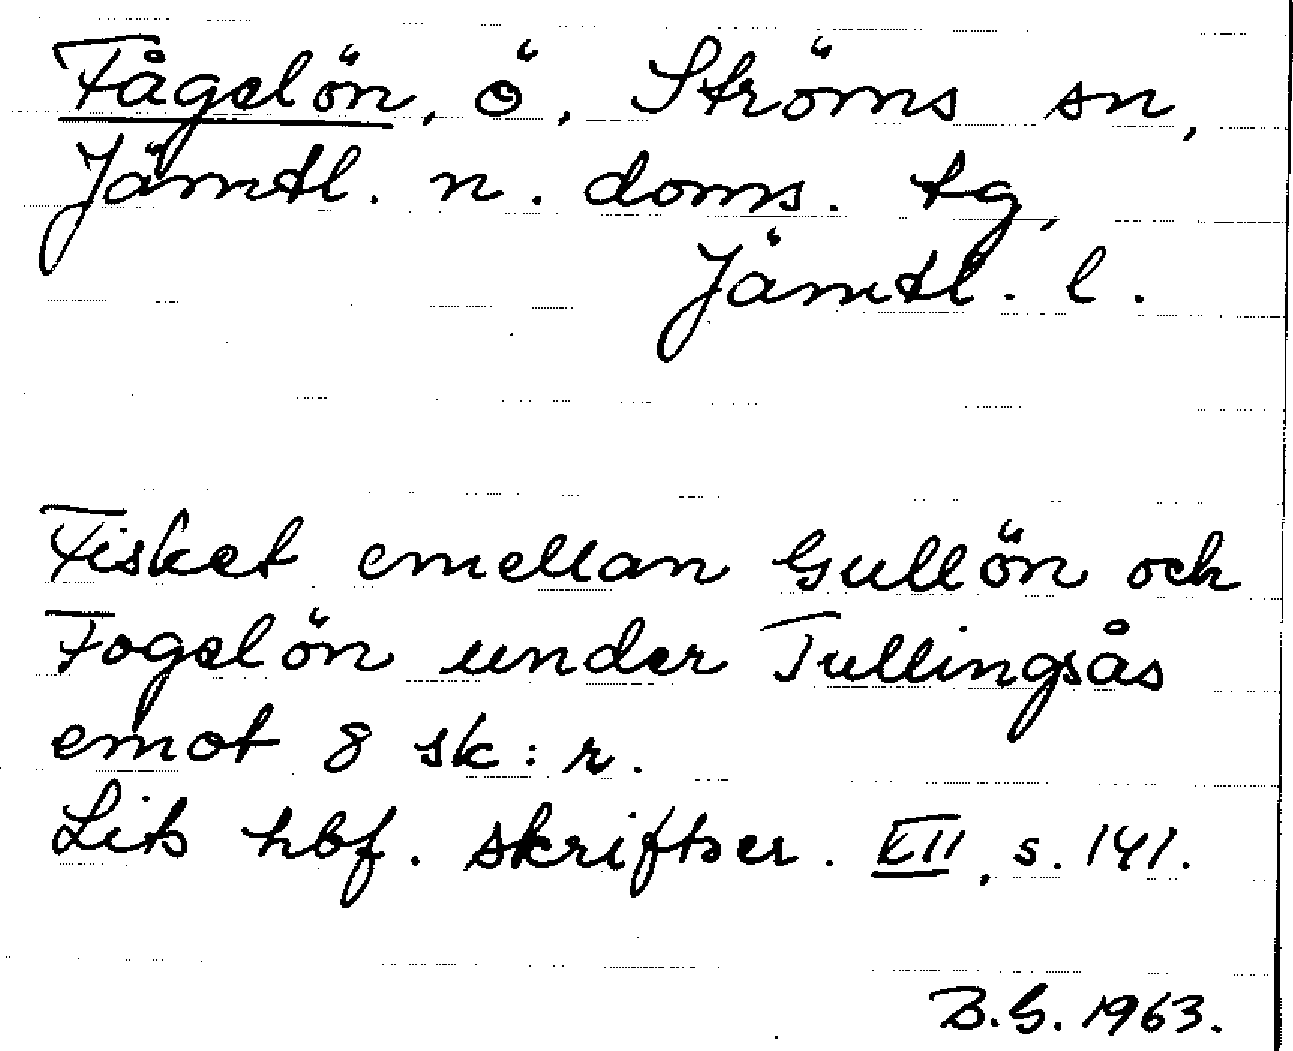 Fågelön, ö, Ströms sn,
Jämtl. n. doms. tg,
Jämtl. l.
Fisket emellan Gullön och
Fogelön under Tullingsås
emot 8 sk:r.
Lits hbf. skriftser. III, s. 141.
B.G. 1963.